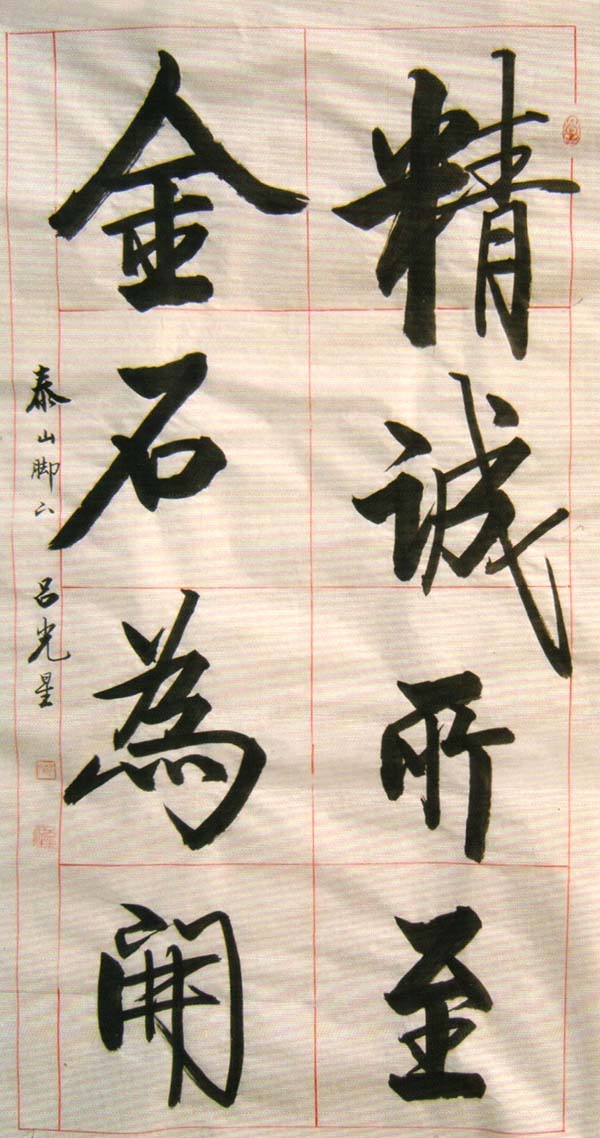 精诚所至
金石為開
泰山脚下 吕光星